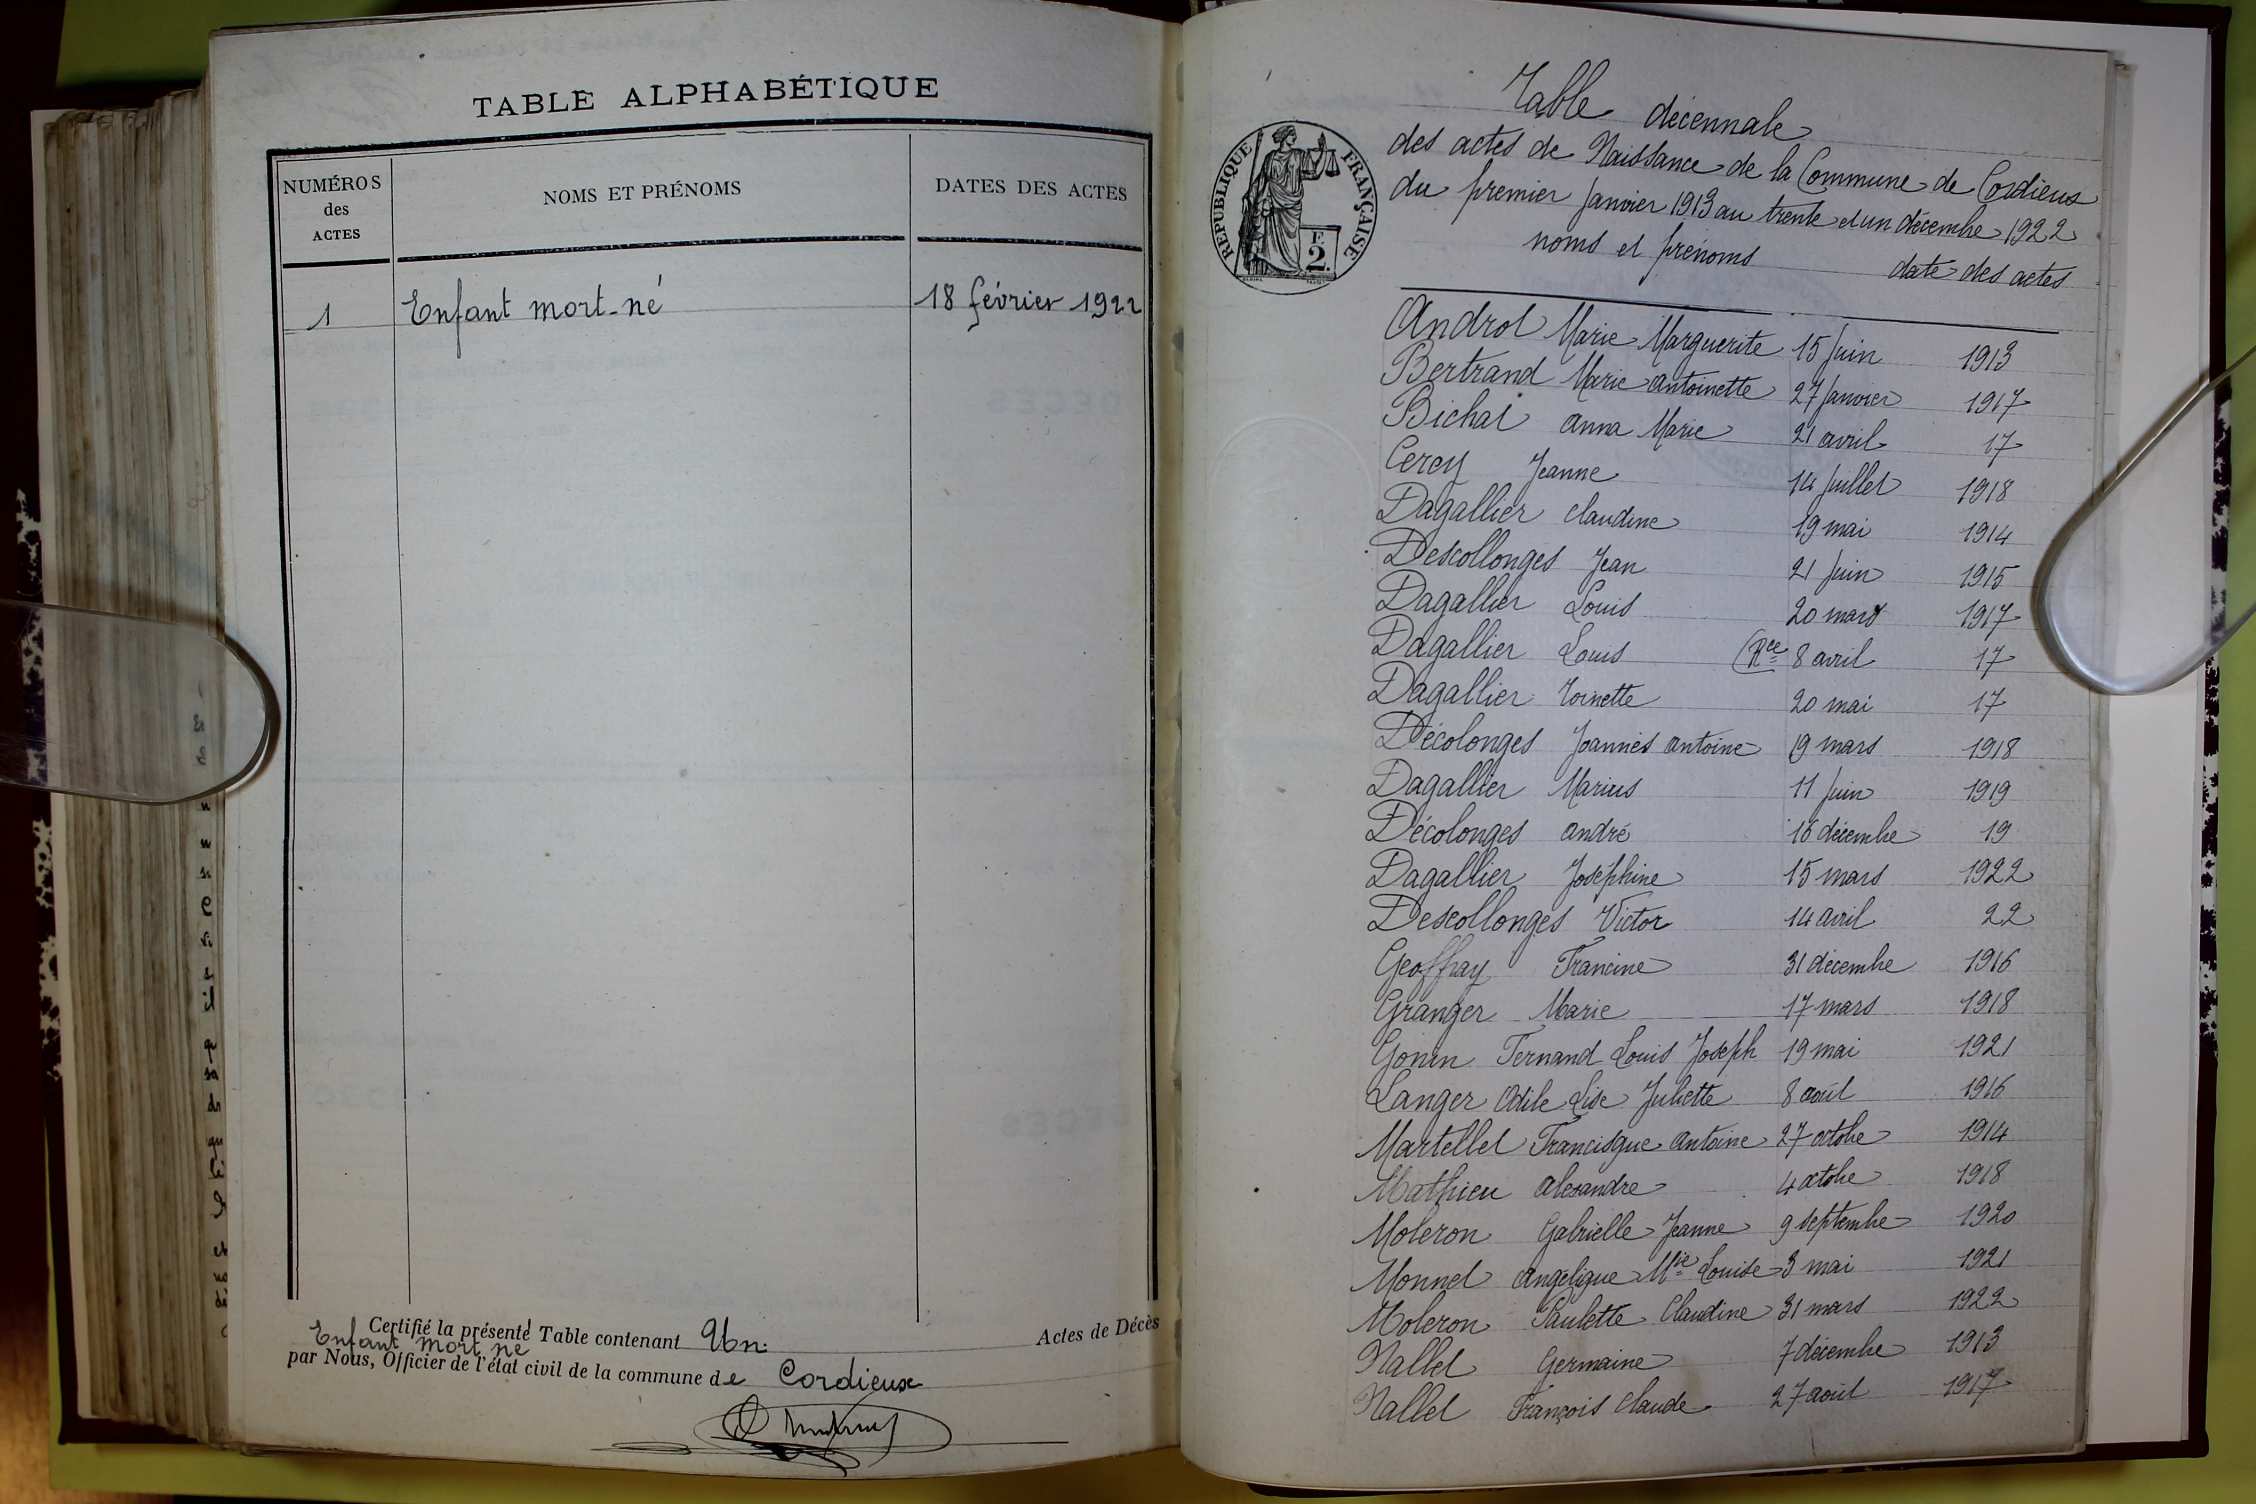 TABLE ALPHABÉTIQUE
NUMÉROS
des
ACTES
NOMS ET PRÉNOMS
DATES DES ACTES
1 Enfant mort-né 18 février 1922
Certifié la présente Table contenant Un Actes de Décès
Enfant mort né
par Nous, Officier de l'état civil de la commune de Cordieux
RÉPUBLIQUE FRANÇAISE
F.
2.
Table décennale
des actes de Naissance de la Commune de Cordieux
du premier Janvier 1913 au trente et un décembre 1922
noms et prénoms date des actes
Androt Marie Marguerite 15 Juin 1913
Bertrand Marie antoinette 27 Janvier 1917
Bichat anna Marie 21 avril 17
Cercy Jeanne 14 Juillet 1918
Dagallier Claudine 19 mai 1914
Descollonges Jean 21 Juin 1915
Dagallier Louis 20 mars 1917
Dagallier Louis (Rce 8 avril 17
Dagallier Toinette 20 mai 17
Décolonges Joannès antoine 19 mars 1918
Dagallier Marius 11 Juin 1919
Décolonges andré 16 décembre 19
Dagallier Joséphine 15 mars 1922
Descollonges Victor 14 avril 22
Geoffray Francine 31 décembre 1916
Granger Marie 17 mars 1918
Gonin Fernand Louis Joseph 19 mai 1921
Langer Odile Lise Juliette 8 août 1916
Martellet Francisque Antoine 27 octobre 1914
Mathieu alexandre 4 octobre 1918
Moleron Gabrielle Jeanne 9 septembre 1920
Monnet angélique Mie Louise 3 mai 1921
Moleron Paulette Claudine 31 mars 1922
Nallet Germaine 7 décembre 1913
Nallet François Claude 27 août 1917